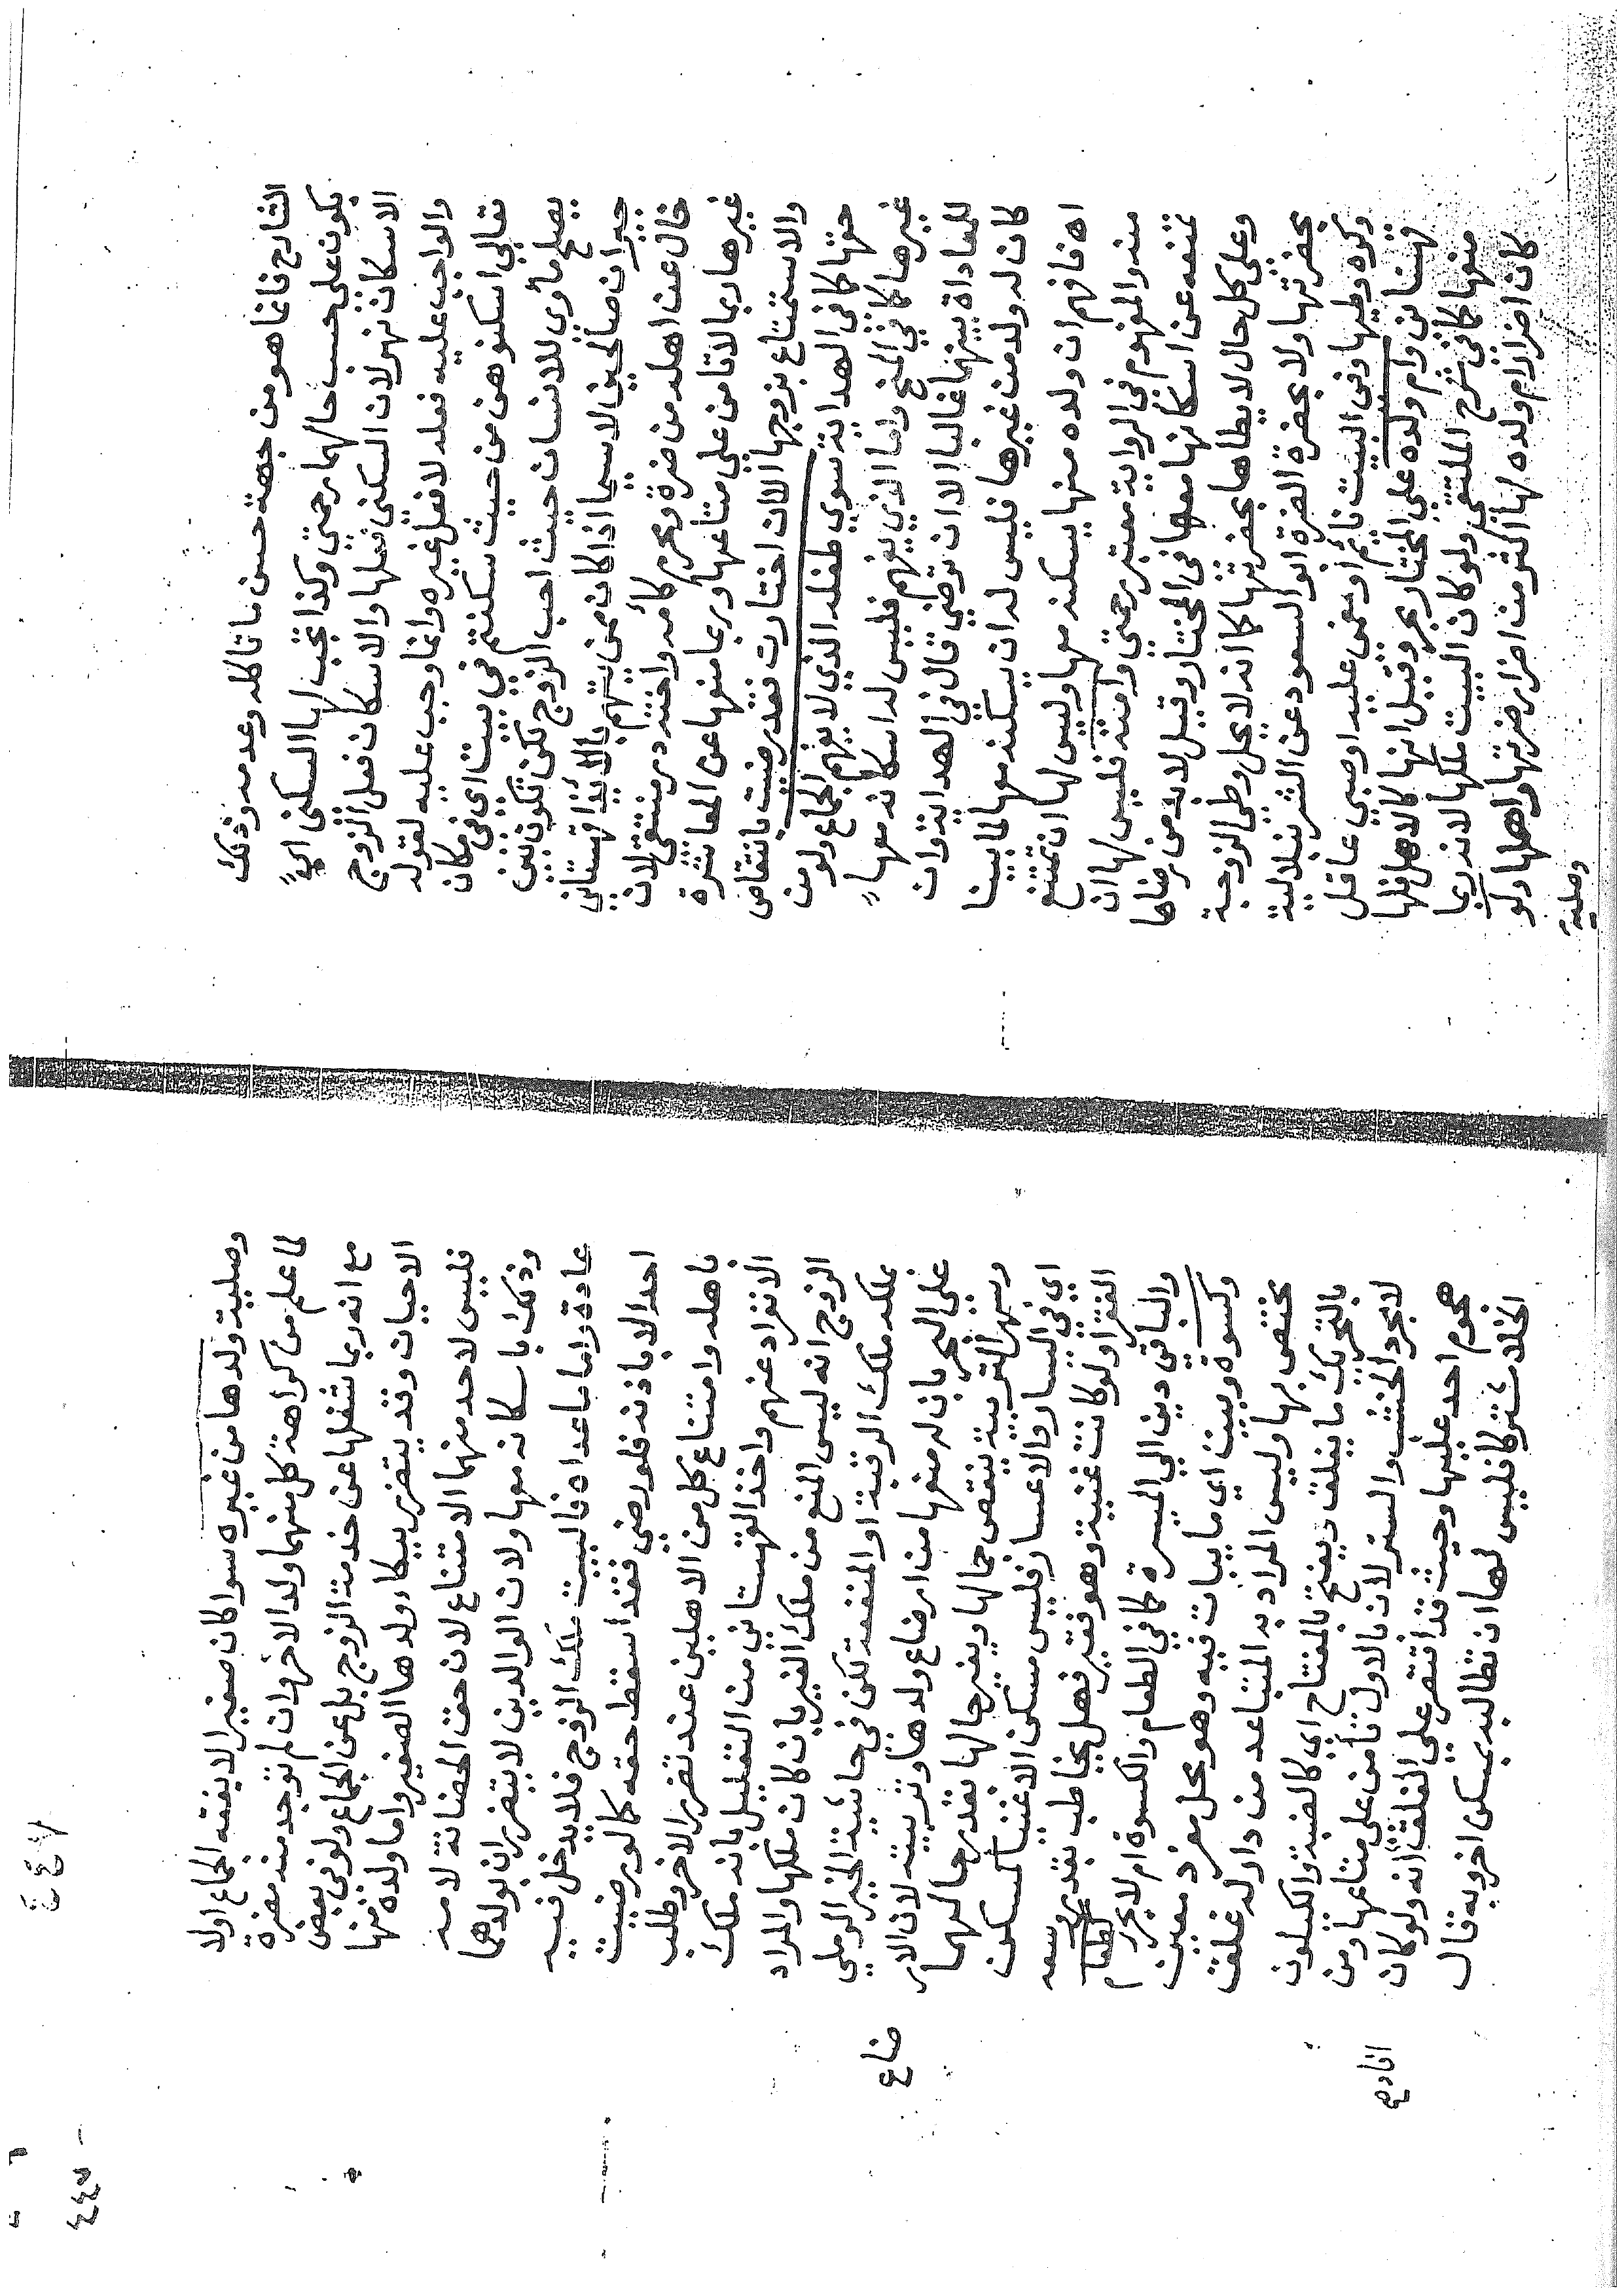 الشارح فانما هو من جهة حسن ما تاكله وعدمه وذلك
يكون على حسب حالهما رحمتي وكذا تجب لها السكنى اي
الاسكان نهر لان السكنى فعلها والاسكان فعل الزوج
والواجب عليه فعله لا فعل غيره وانما وجب عليه لقوله
تعالى اسكنوهن من حيث سكنتم في بيت اي في مكان
يصلح مأوى للانسان حيث احب الزوج لكن تكون بين
جيران صالحين لاسيما اذا كان ممن يتهم بالايذا قهستاني
خال عن اهله من ضرة ومحرم كأمه واخته در منتقى لان
غيرها ربما لا تامن على متاعها وربما منعها عن المعاشرة
والاستمتاع بزوجها الا ان اختارت فقد رضيت بانتقاص
حقها كما في الهداية سوى طفله الذي لا يفهم الجماع ولو من
غيرها كما في المنح واما الذي يفهم فليس له اسكانه معها
للمعاداة بينهما غالبا الا ان ترضى قال في الهداية وان
كان له ولد من غيرها فليس له ان يسكنه معها لما بينا
اه فافهم ان ولده منها يسكنه معها وليس لها ان تمتنع
منه والمفهوم في الرواية معتبر رحمتي وامته فليس لها ان
تمنعه عن اسكانها معها في المختار وقيل لا بد من رضاها
وعلى كل حال لا يطاها بحضرتها كما انه لا يحل وطئ الزوجة
بحضرتها ولا بحضرة الضرة ابو السعود عن الشرنبلالية
وكره وطيها وفي البيت نايم او مغمى عليه او صبي عاقل
قهستاني وام ولده على المختار بحر وقيل انها كالاهل فلها
منعها كما في شرح الملتقى ولو كان البيت ملكها لانه ربما
كان اضرار ام ولده لها اكثر من اضرار ضرتها واهلها ولو
وصلية
وصلية ولدها من غيره سواء كان صغيرا لا يفقه الجماع اولا
لما علم من كراهة كل منهما ولد الاخر وان لم توجد منه مضرة
مع انه ربما شغلها عن خدمة الزوج بل عن الجماع ولو في بعض
الاحيان وقد يتضرر ببكاء ولدها الصغير واما ولده منها
فليس لاحد منهما الامتناع لان حق الحضانة لامه
وذلك باسكانه معها ولان الوالدين لا يتضرران بولدهما
عادة واما ما عداه فالبيت ملك الزوج فلا يدخل فيه
احد الا باذنه فلو رضي فقد اسقط حقه كما لو رضيت
باهله وامتناع كل من الاهلين عند تضرر الاخر وطلب
الانفراد عنهم واخذ القهستاني من التعليل بانه ملك
الزوج انه ليس المنع من ملك الغير بان كان ملكها والمراد
بملكه ملك الرقبة او المنفعة لكن في حاشية الخير الرملي
على البحر بان له منعها من ارضاع ولدها وتربيته لان الار
ضاع
وسهر التربية ينقص جمالها ويغير حالها بقدر حالهما
اي في اليسار والاعسار فليس مسكن الاغنيا كمسكن
الفقرا ولو كانت غنية وهو فقير فهل يخاطب بقدر وسعه
والباقي دين الى الميسرة كما في الطعام والكسوة ام لا يحرر كطعام
وكسوة وبيت اي ما يبات فيه وهو محل مفرد معين
يختص بها وليس المراد به المتباعد من دار له غلق
بالتحريك ما يغلق ويفتح بالمفتاح اي كالضبة والكيلون
لا مجرد الخشب والستر لان بالاول تأمن على متاعها ومن
هجوم احد عليها وحيث قد اقتصر على الغلق انه ولو كان
افاد
الخلا مشتركا فليس لها ان تطالبه بمسكن اخر وبه قال
٤٤٧